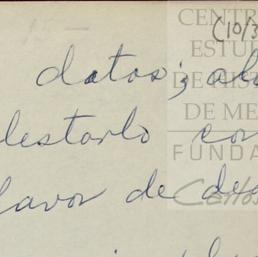 CENTR
(10/3
ESTU
datos; al
DE HIS
DE ME
lestarlo co
FUNDA
Carlos
favor de de